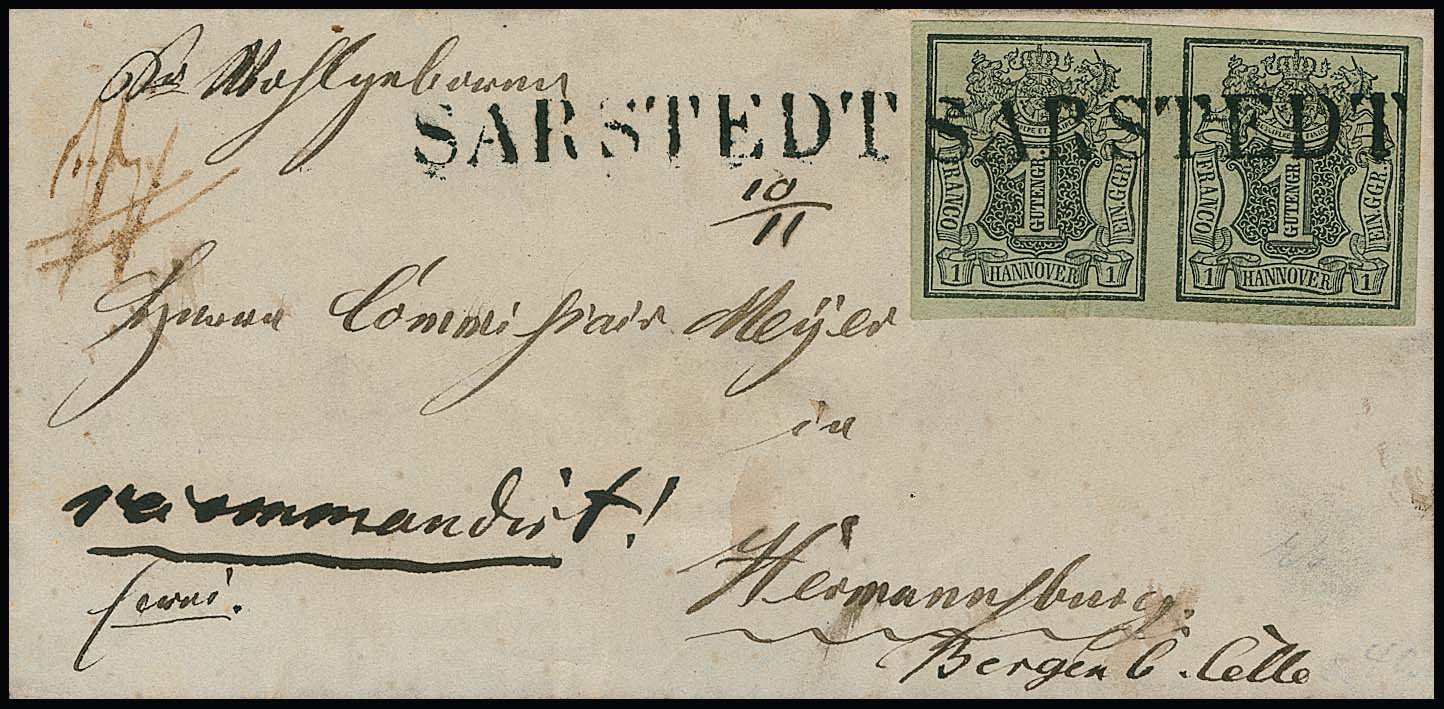 Sr Wohlgeboren
SARSTEDT SARSTEDT
10
11
FRANCO 1 GUTENGR. EIN.GGR.
1 HANNOVER 1
FRANCO 1 GUTENGR. EIN.GGR.
1 HANNOVER 1
Herrn Commissair Meÿer
in
recommandirt!
Hermannsburg.
frei.
Bergen b. Celle